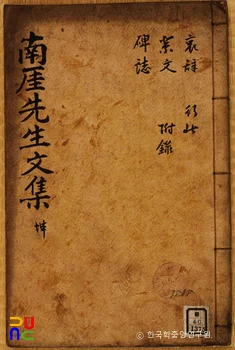 南厓先生文集 坤
哀辭 行狀
祭文 附錄
碑誌
© 한국학중앙연구원